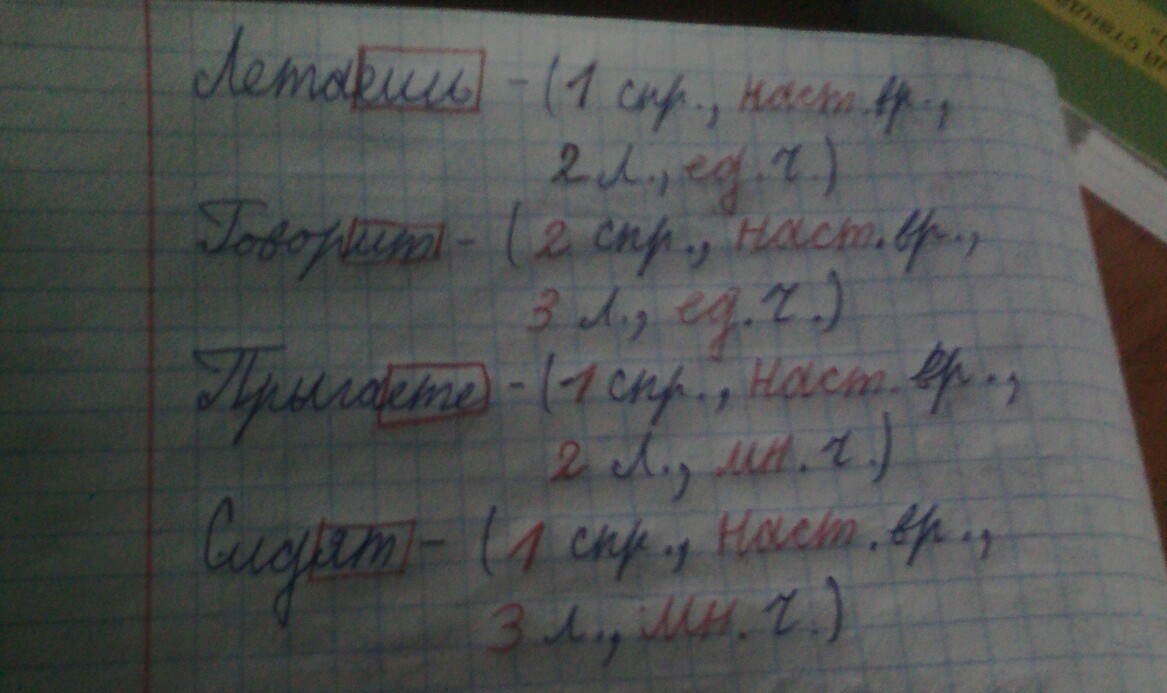 Летаешь - (1 спр., наст.вр.,
2 л., ед.ч.)
Говорит - (2 спр., наст.вр.,
3 л., ед.ч.)
Прыгаете - (1 спр., наст.вр.,
2 л., мн.ч.)
Сидят - (1 спр., наст.вр.,
3 л., мн.ч.)